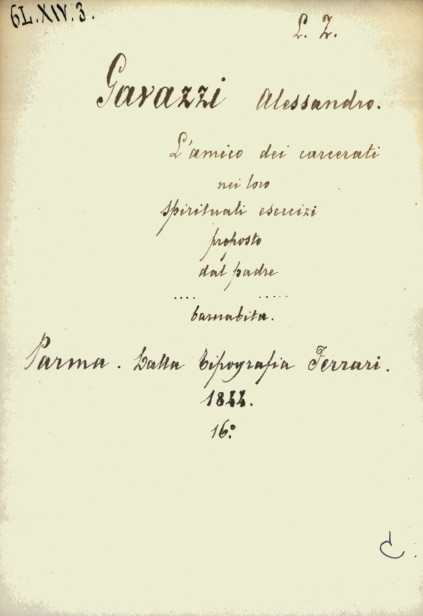 6L.XIV.3.
L. Z.
Gavazzi Alessandro.
L'amico dei carcerati
nei loro
spirituali esercizi
proposto
dal padre
.... .....
barnabita.
Parma. Dalla tipografia Ferrari.
1844.
16°
C.